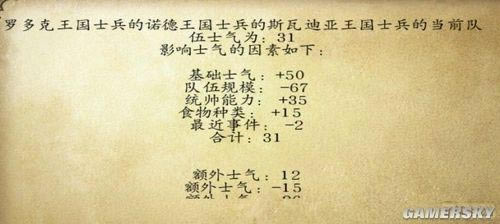 罗多克王国士兵的诺德王国士兵的斯瓦迪亚王国士兵的当前队
伍士气为: 31
影响士气的因素如下:
基础士气: +50
队伍规模: -67
统帅能力: +35
食物种类: +15
最近事件: -2
合计: 31
额外士气: 12
额外士气: -15
GAMERSKY